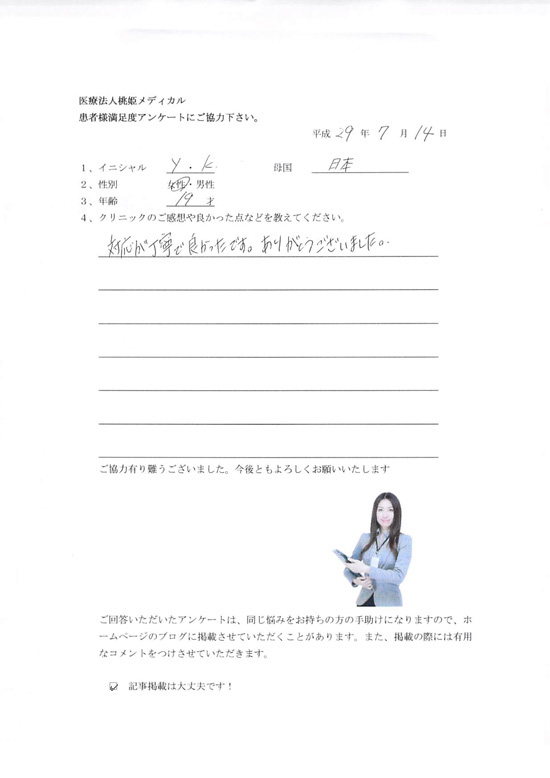 医療法人桃姫メディカル
患者様満足度アンケートにご協力下さい。
平成 29 年 7 月 14 日
1、イニシャル Y . K. 母国 日本
2、性別 女性・男性
3、年齢 19 才
4、クリニックのご感想や良かった点などを教えてください。
対応が丁寧で良かったです。ありがとうございました。
ご協力有り難うございました。今後ともよろしくお願いいたします
ご回答いただいたアンケートは、同じ悩みをお持ちの方の手助けになりますので、ホ
ームページのブログに掲載させていただくことがあります。また、掲載の際には有用
なコメントをつけさせていただきます。
☑ 記事掲載は大丈夫です!